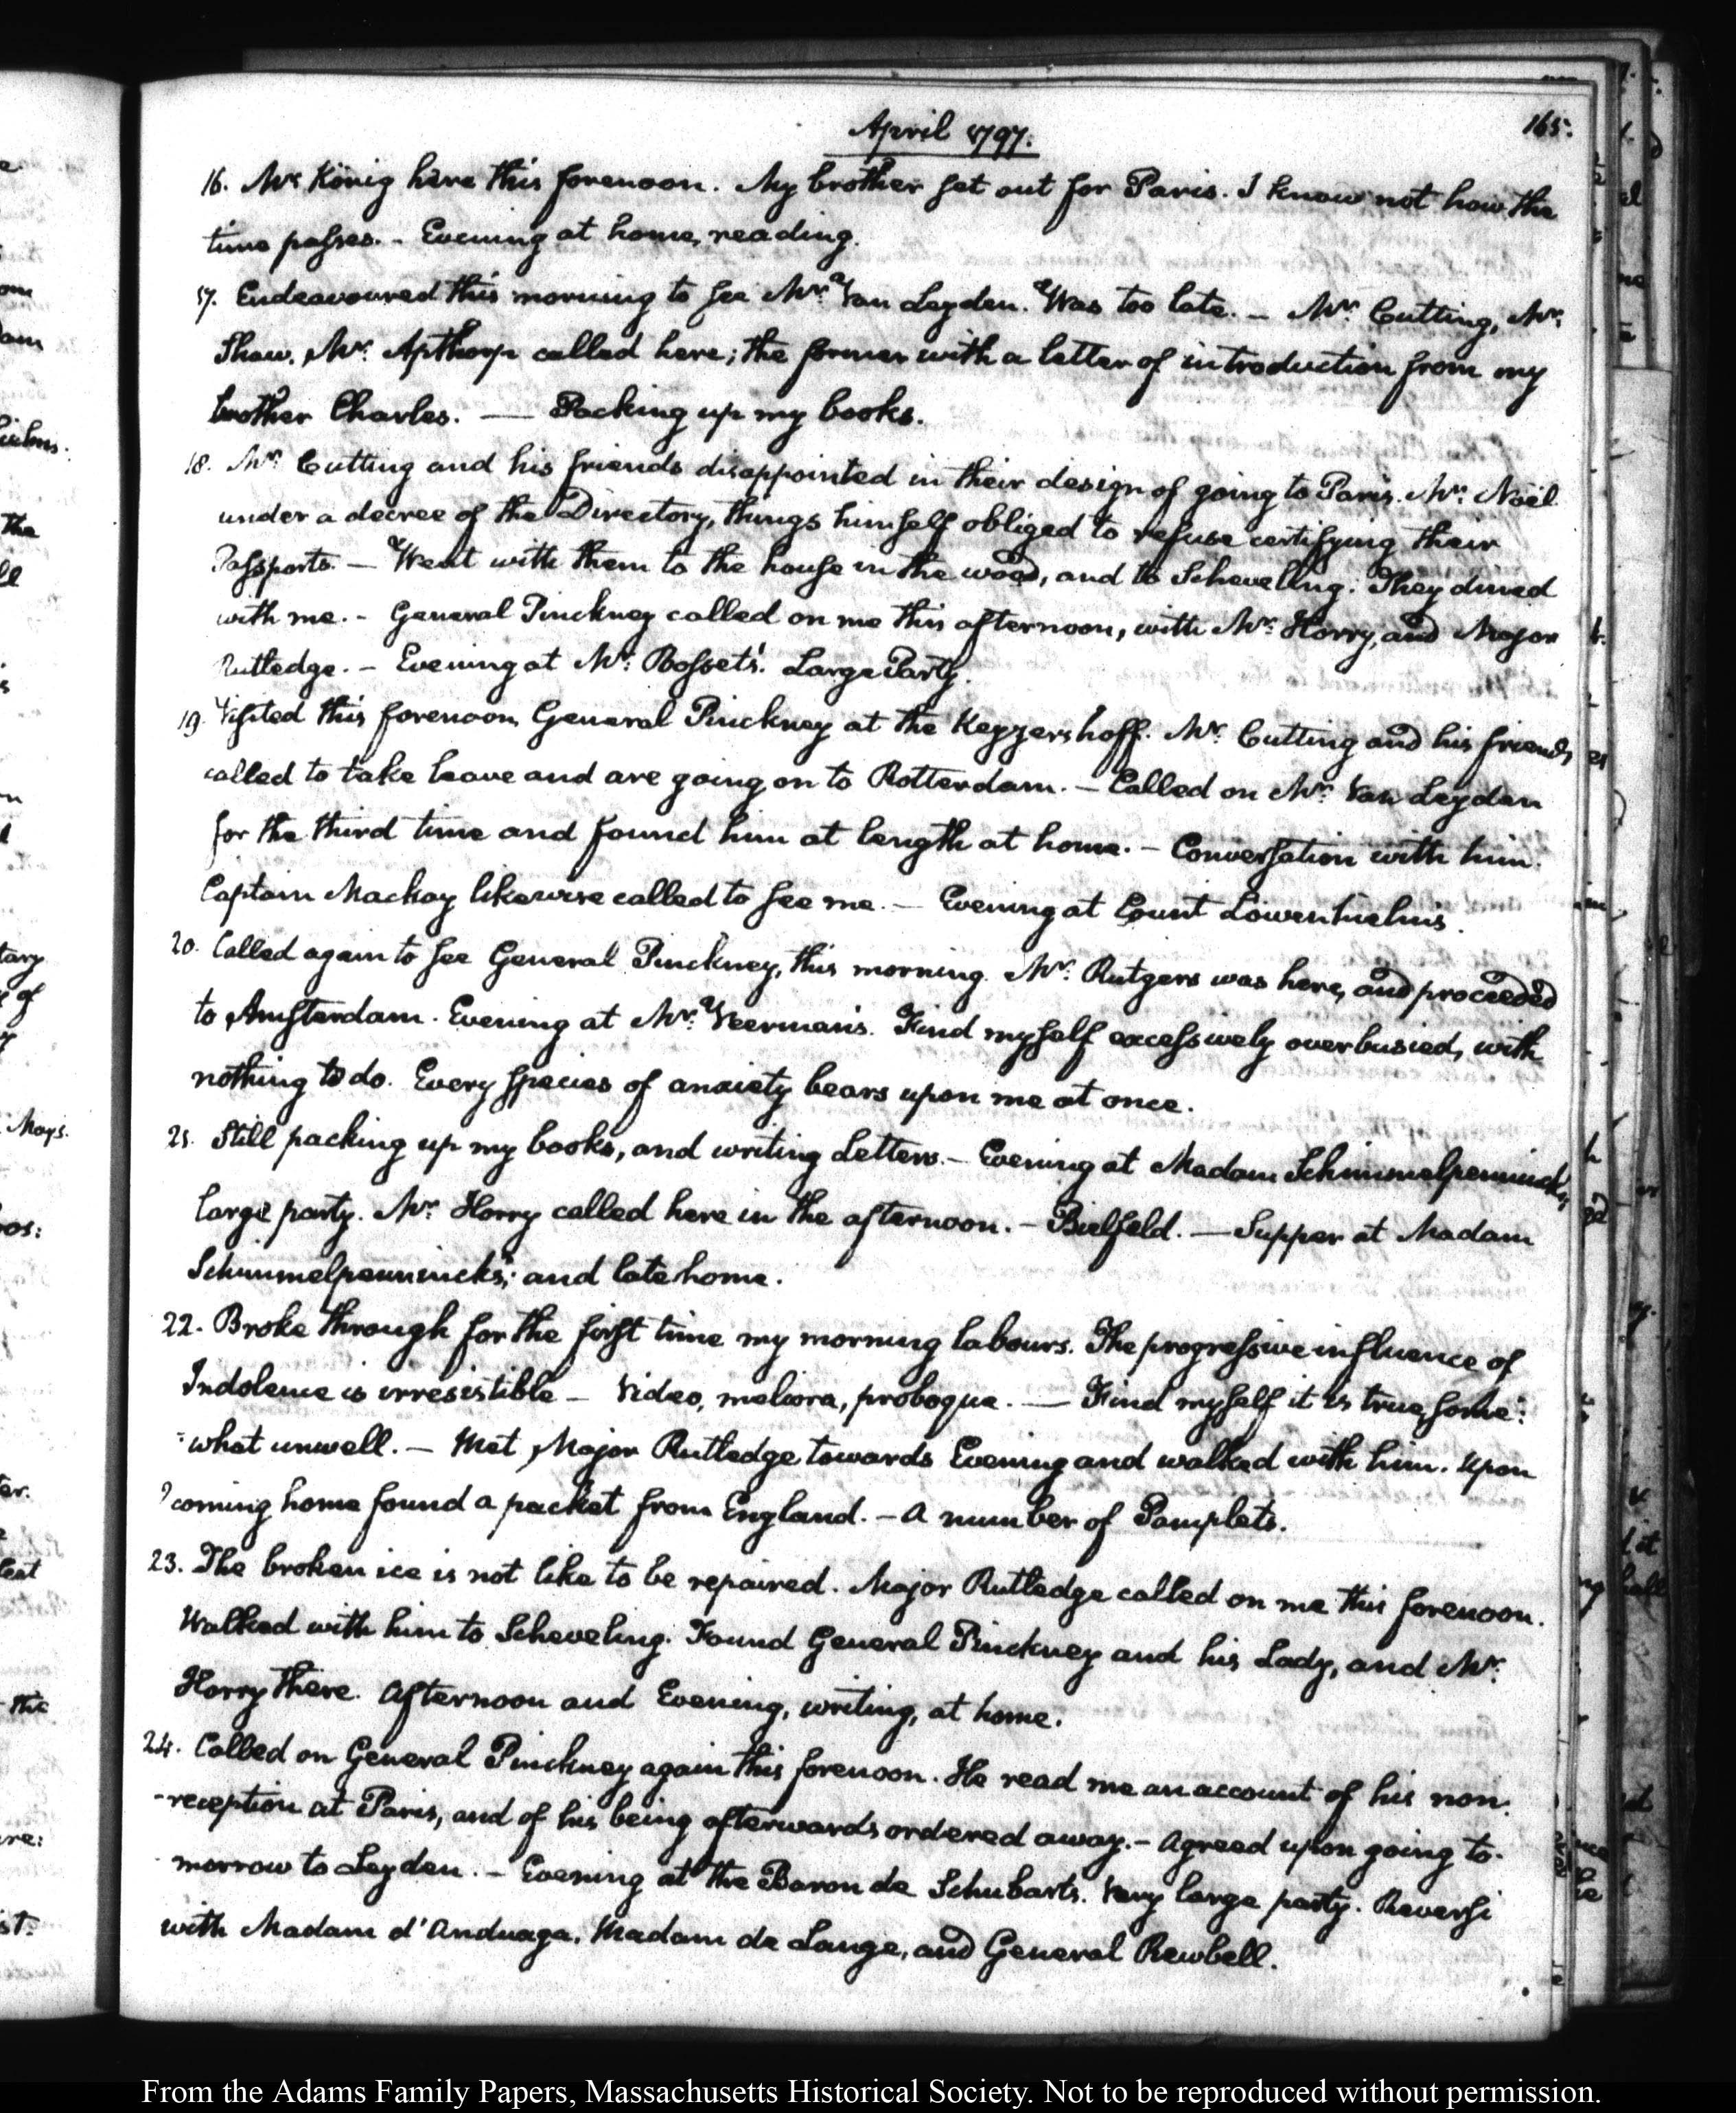 April 1797.
165.
16. Mr. König here this forenoon. My brother set out for Paris. I know not how the
time passes. - Evening at home, reading.
17. Endeavoured this morning to see Mr. Van Leyden. Was too late. — Mr. Cutting, Mr.
Shaw, Mr. Apthorp called here; the former with a letter of introduction from my
brother Charles. — Packing up my books.
18. Mr. Cutting and his friends disappointed in their design of going to Paris. Mr. Noël
under a decree of the Directory, things himself obliged to refuse certifying their
Passports. — Went with them to the house in the wood, and to Scheveling. They dined
with me. - General Pinckney called on me this afternoon, with Mr. Horry, and Major
Rutledge. — Evening at Mr. Bosset's. Large Party.
19. Visited this forenoon General Pinckney at the Keyzershoff. Mr. Cutting and his friends
called to take leave and are going on to Rotterdam. — Called on Mr. Van Leyden
for the third time and found him at length at home. — Conversation with him.
Captain Mackay likewise called to see me. — Evening at Count Löwenhielm's.
20. Called again to see General Pinckney, this morning. Mr. Rutgers was here, and proceeded
to Amsterdam. Evening at Mr. Veerman's. Find myself excessively overbusied, with
nothing to do. Every species of anxiety bears upon me at once.
21. Still packing up my books, and writing Letters. — Evening at Madam Schimmelpenninck's,
large party. Mr. Horry called here in the afternoon. — Bielfeld. — Supper at Madam
Schimmelpenninck's; and late home.
22. Broke through for the first time my morning labours. The progressive influence of
Indolence is irresistible — Video, meliora, proboque. — Find myself it is true, some-
-what unwell. — Met Major Rutledge towards Evening and walked with him. Upon
coming home found a packet from England. — A number of Pamplets.
23. The broken ice is not like to be repaired. Major Rutledge called on me this forenoon.
Walked with him to Scheveling. Found General Pinckney and his Lady, and Mr.
Horry there. Afternoon and Evening, writing, at home.
24. Called on General Pinckney again this forenoon. He read me an account of his non-
-reception at Paris, and of his being afterwards ordered away. — Agreed upon going to-
morrow to Leyden. — Evening at the Baron de Schubarts. Very large party. Reversi
with Madam d'Anduaga, Madam de Lange, and General Rewbell.
From the Adams Family Papers, Massachusetts Historical Society. Not to be reproduced without permission.